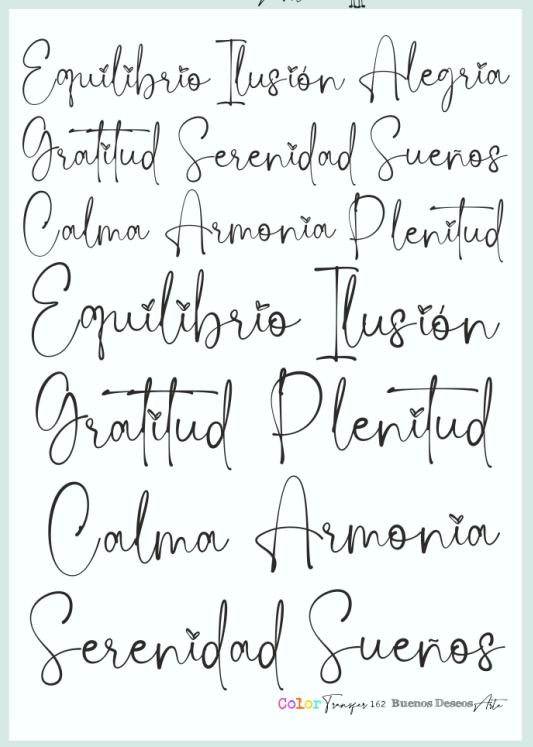 Equilibrio Ilusión Alegria
Gratitud Serenidad Sueños
Calma Armonia Plenitud
Equilibrio Ilusión
Gratitud Plenitud
Calma Armonia
Serenidad Sueños
Color Transfer 162 Buenos Deseos Arte